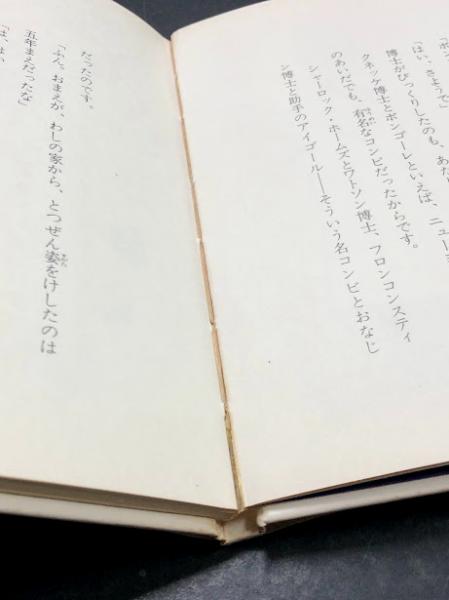 「ボン
「はい、さようで」
博士がびっくりしたのも、あた
クネッケ博士とボンゴーレといえば、ニュー
のあいだでも、有名なコンビだったからです。
シャーロック・ホームズとワトソン博士、フロンコンスティ
ン博士と助手のアイゴール――そういう名コンビとおなじ
だったのです。
「ふん。おまえが、わしの家から、とつぜん姿をけしたのは
五年まえだったな」
「は、はい